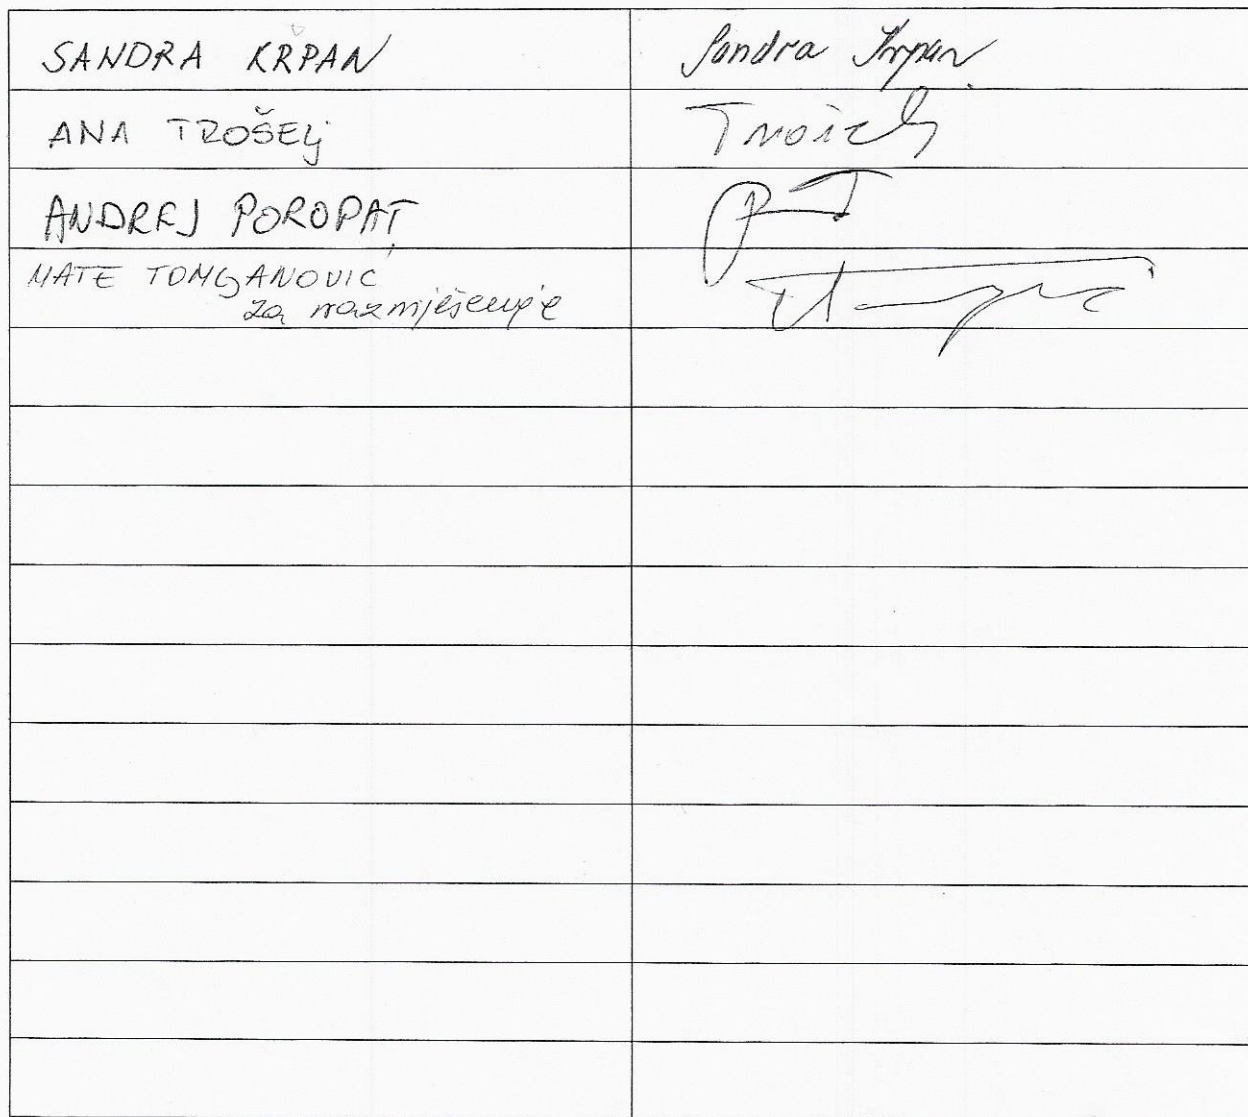 SANDRA KRPAN Sandra Krpan
ANA TROŠELJ
ANDREJ POROPAT
MATE TOMLJANOVIĆ
za razmješenje